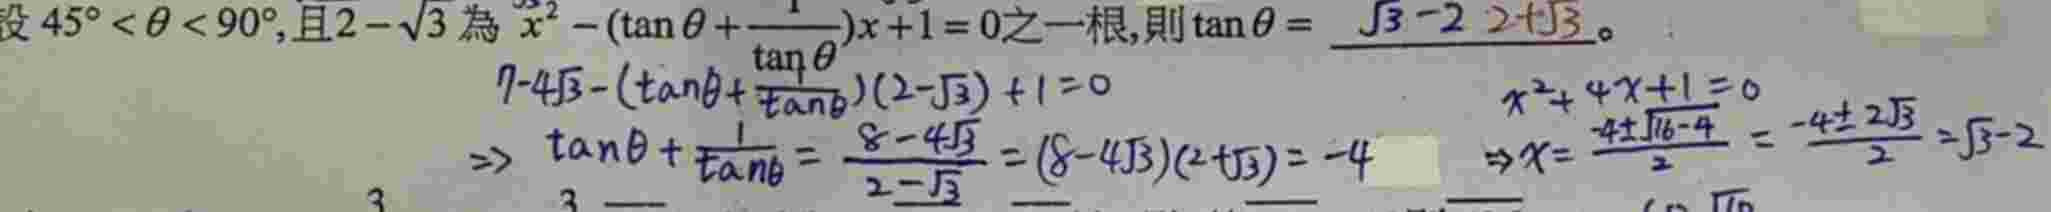 設 45° < θ < 90°, 且 2 - √3 為 x² - (tan θ + 1/tan θ)x + 1 = 0 之一根, 則 tan θ = √3 - 2 2+√3 。
7-4√3 - (tanθ + 1/tanθ)(2-√3) + 1 = 0
⇒ tanθ + 1/tanθ = (8-4√3)/(2-√3) = (8-4√3)(2+√3) = -4
x² + 4x + 1 = 0
⇒ x = (-4±√(16-4))/2 = (-4±2√3)/2 = √3-2